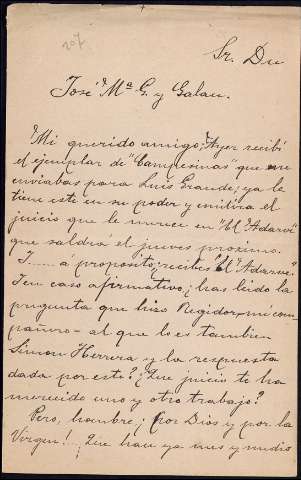 207
Sr. Dn
José Mª G. y Galan.
Mi querido amigo; Ayer recibí
el ejemplar de "Campesinas" que me
enviabas para Luis Grande; ya le
tiene este en su poder y emitira el
juicio que le merece en "El Adarve"
que saldrá el jueves proximo.
Y...... á proposito; recibes "El Adarve"?
Y en caso afirmativo; ¿has leido la
pregunta que hizo Regidor, mi com-
pañero - al que lo es tambien
Simon Herrera y la respuesta
dada por este? ¿Que juicio te ha
merecido uno y otro trabajo?
Pero, hombre, ¡por Dios y por la
Virgen!, Que hace ya mes y medio